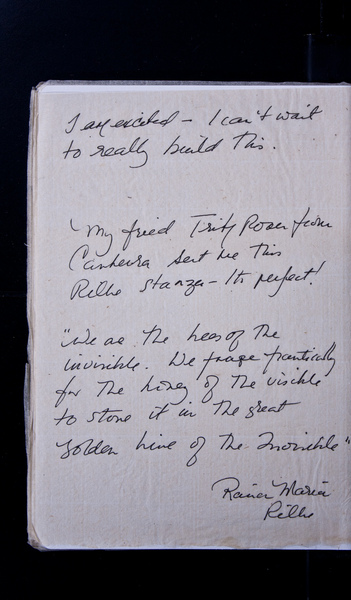 I am excited – I can't wait
to really build this.
My friend Trify Rosen from
Canberra sent me this
Rilke stanza – It's perfect!
"We are the bees of the
invisible. We forage frantically
for the honey of the visible
to store it in the great
golden hive of the Invisible"
Rainer Maria
Rilke